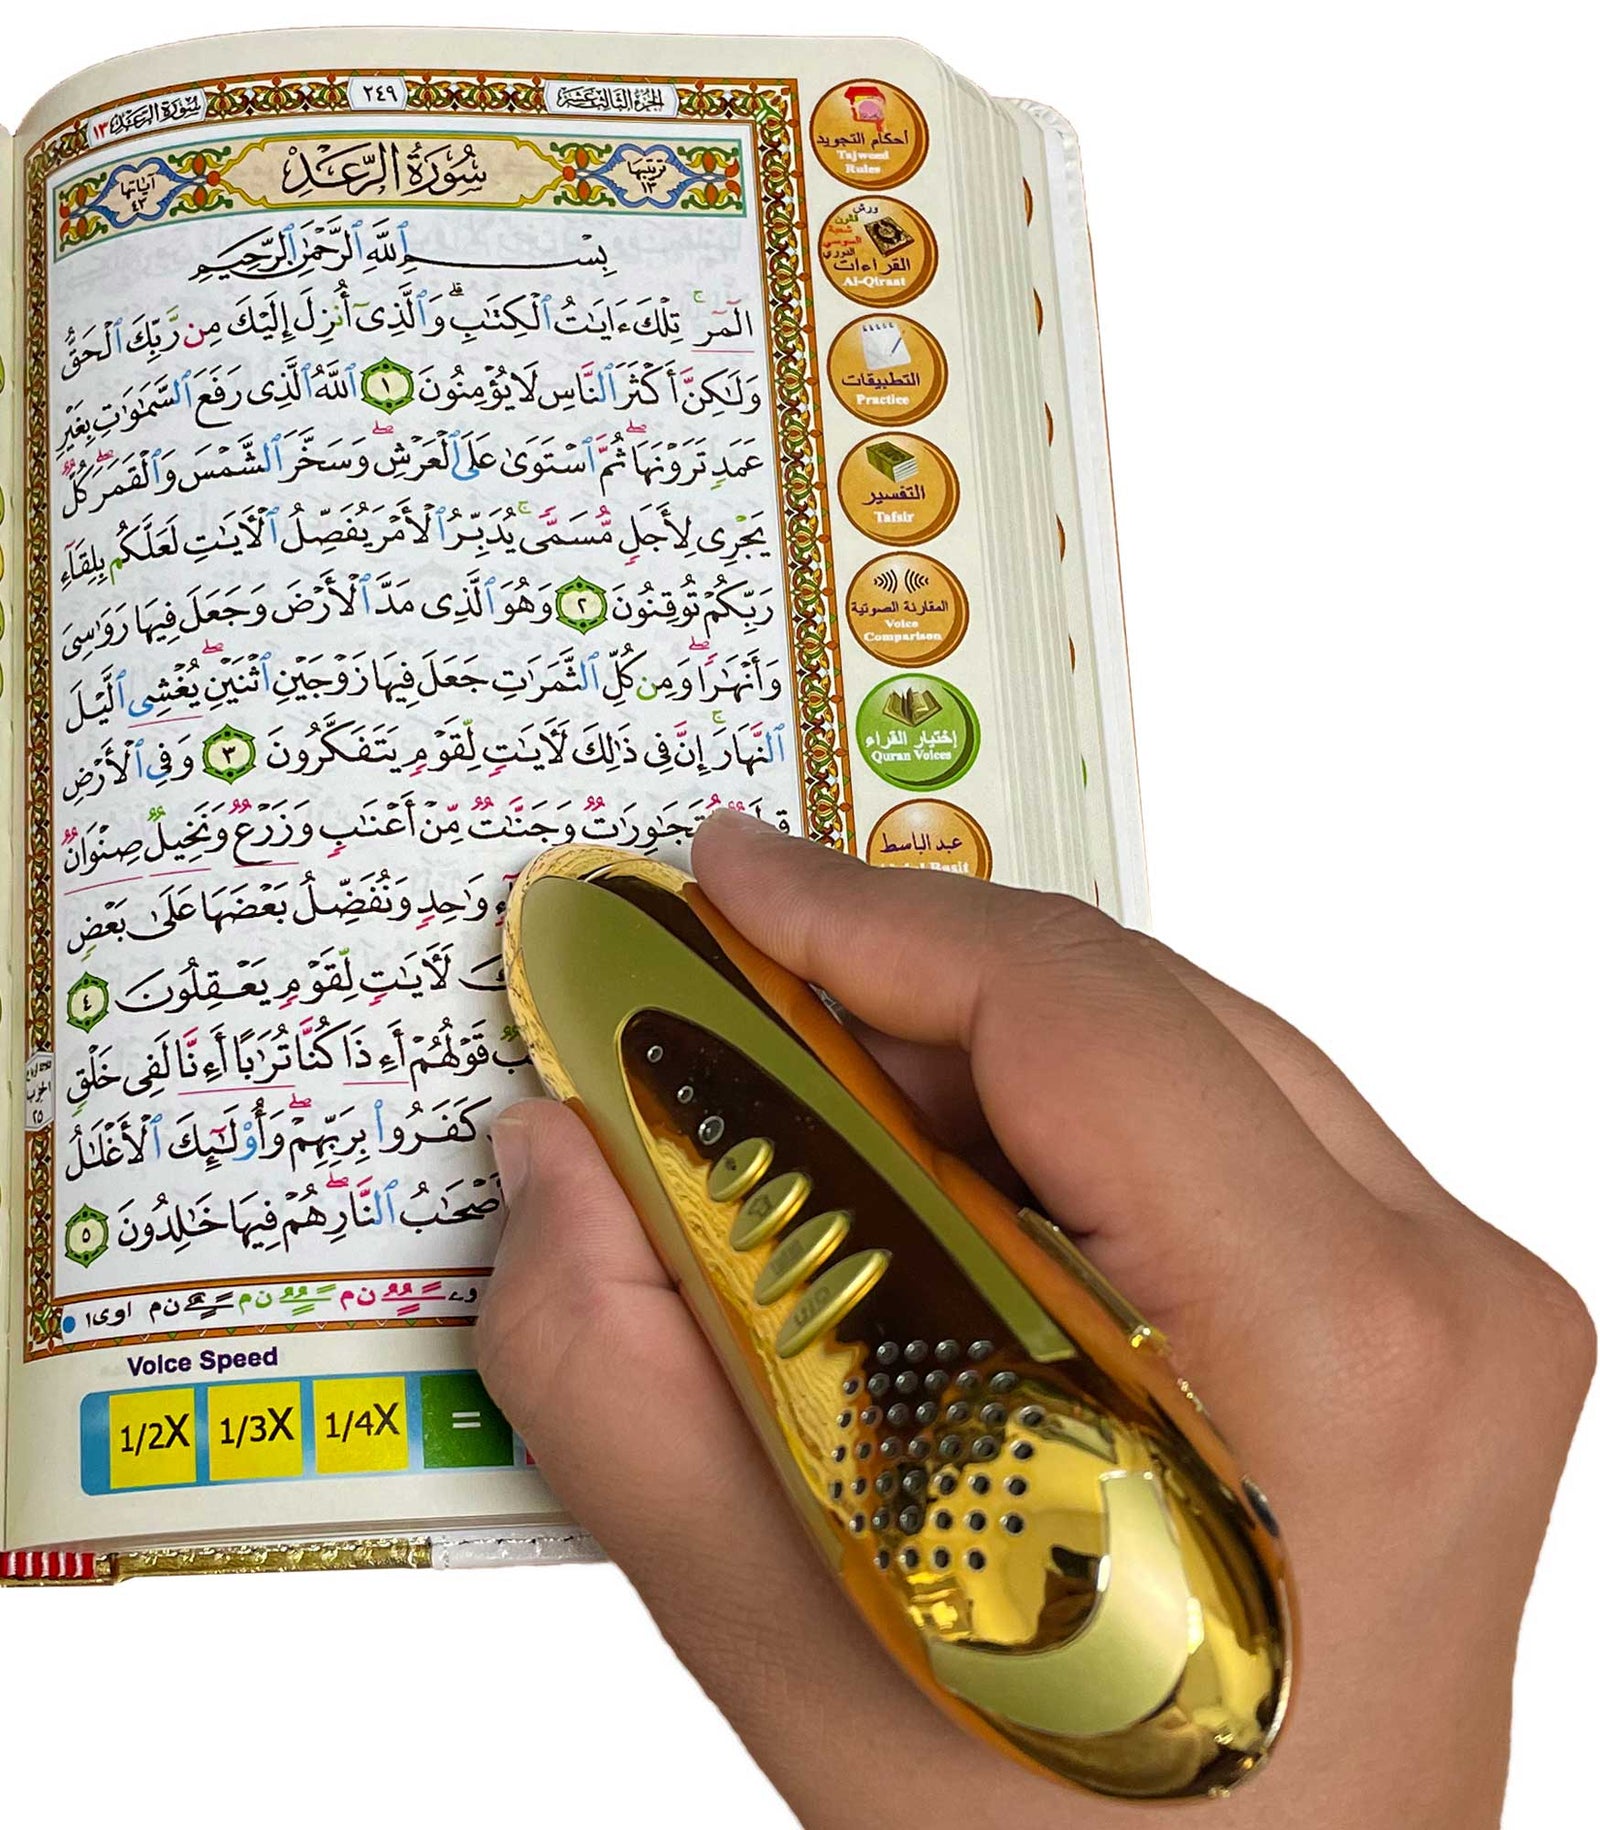 الجزء الثالث عشر
٢٤٩
سورة الرعد ١٣
ترتيبها ١٣
سُورَةُ الرَّعْدِ
آياتها ٤٣
بِسْمِ ٱللَّهِ ٱلرَّحْمَٰنِ ٱلرَّحِيمِ
الٓمٓر ۚ تِلْكَ ءَايَٰتُ ٱلْكِتَٰبِ ۗ وَٱلَّذِىٓ أُنزِلَ إِلَيْكَ مِن رَّبِّكَ ٱلْحَقُّ
وَلَٰكِنَّ أَكْثَرَ ٱلنَّاسِ لَا يُؤْمِنُونَ ١ ٱللَّهُ ٱلَّذِى رَفَعَ ٱلسَّمَٰوَٰتِ بِغَيْرِ
عَمَدٍ تَرَوْنَهَا ۖ ثُمَّ ٱسْتَوَىٰ عَلَى ٱلْعَرْشِ ۖ وَسَخَّرَ ٱلشَّمْسَ وَٱلْقَمَرَ ۖ كُلٌّ
يَجْرِى لِأَجَلٍ مُّسَمًّى ۚ يُدَبِّرُ ٱلْأَمْرَ يُفَصِّلُ ٱلْءَايَٰتِ لَعَلَّكُم بِلِقَآءِ
رَبِّكُمْ تُوقِنُونَ ٢ وَهُوَ ٱلَّذِى مَدَّ ٱلْأَرْضَ وَجَعَلَ فِيهَا رَوَٰسِىَ
وَأَنْهَٰرًا ۖ وَمِن كُلِّ ٱلثَّمَرَٰتِ جَعَلَ فِيهَا زَوْجَيْنِ ٱثْنَيْنِ ۖ يُغْشِى ٱلَّيْلَ
ٱلنَّهَارَ ۚ إِنَّ فِى ذَٰلِكَ لَءَايَٰتٍ لِّقَوْمٍ يَتَفَكَّرُونَ ٣ وَفِى ٱلْأَرْضِ
مُّتَجَٰوِرَٰتٌ وَجَنَّٰتٌ مِّنْ أَعْنَٰبٍ وَزَرْعٌ وَنَخِيلٌ صِنْوَانٌ
وَٰحِدٍ وَنُفَضِّلُ بَعْضَهَا عَلَىٰ بَعْضٍ
لَءَايَٰتٍ لِّقَوْمٍ يَعْقِلُونَ ٤
قَوْلُهُمْ أَءِذَا كُنَّا تُرَٰبًا أَءِنَّا لَفِى خَلْقٍ
كَفَرُوا۟ بِرَبِّهِمْ ۖ وَأُو۟لَٰٓئِكَ ٱلْأَغْلَٰلُ
أَصْحَٰبُ ٱلنَّارِ ۖ هُمْ فِيهَا خَٰلِدُونَ ٥
Voice Speed
1/2X 1/3X 1/4X =
أحكام التجويد
Tajweed
Rules
ورش
قالون
شعبة
السوسي
الدوري
القراءات
Al-Qiraat
التطبيقات
Practice
التفسير
Tafsir
المقارنة الصوتية
Voice
Comparison
إختيار القراء
Quran Voices
عبد الباسط